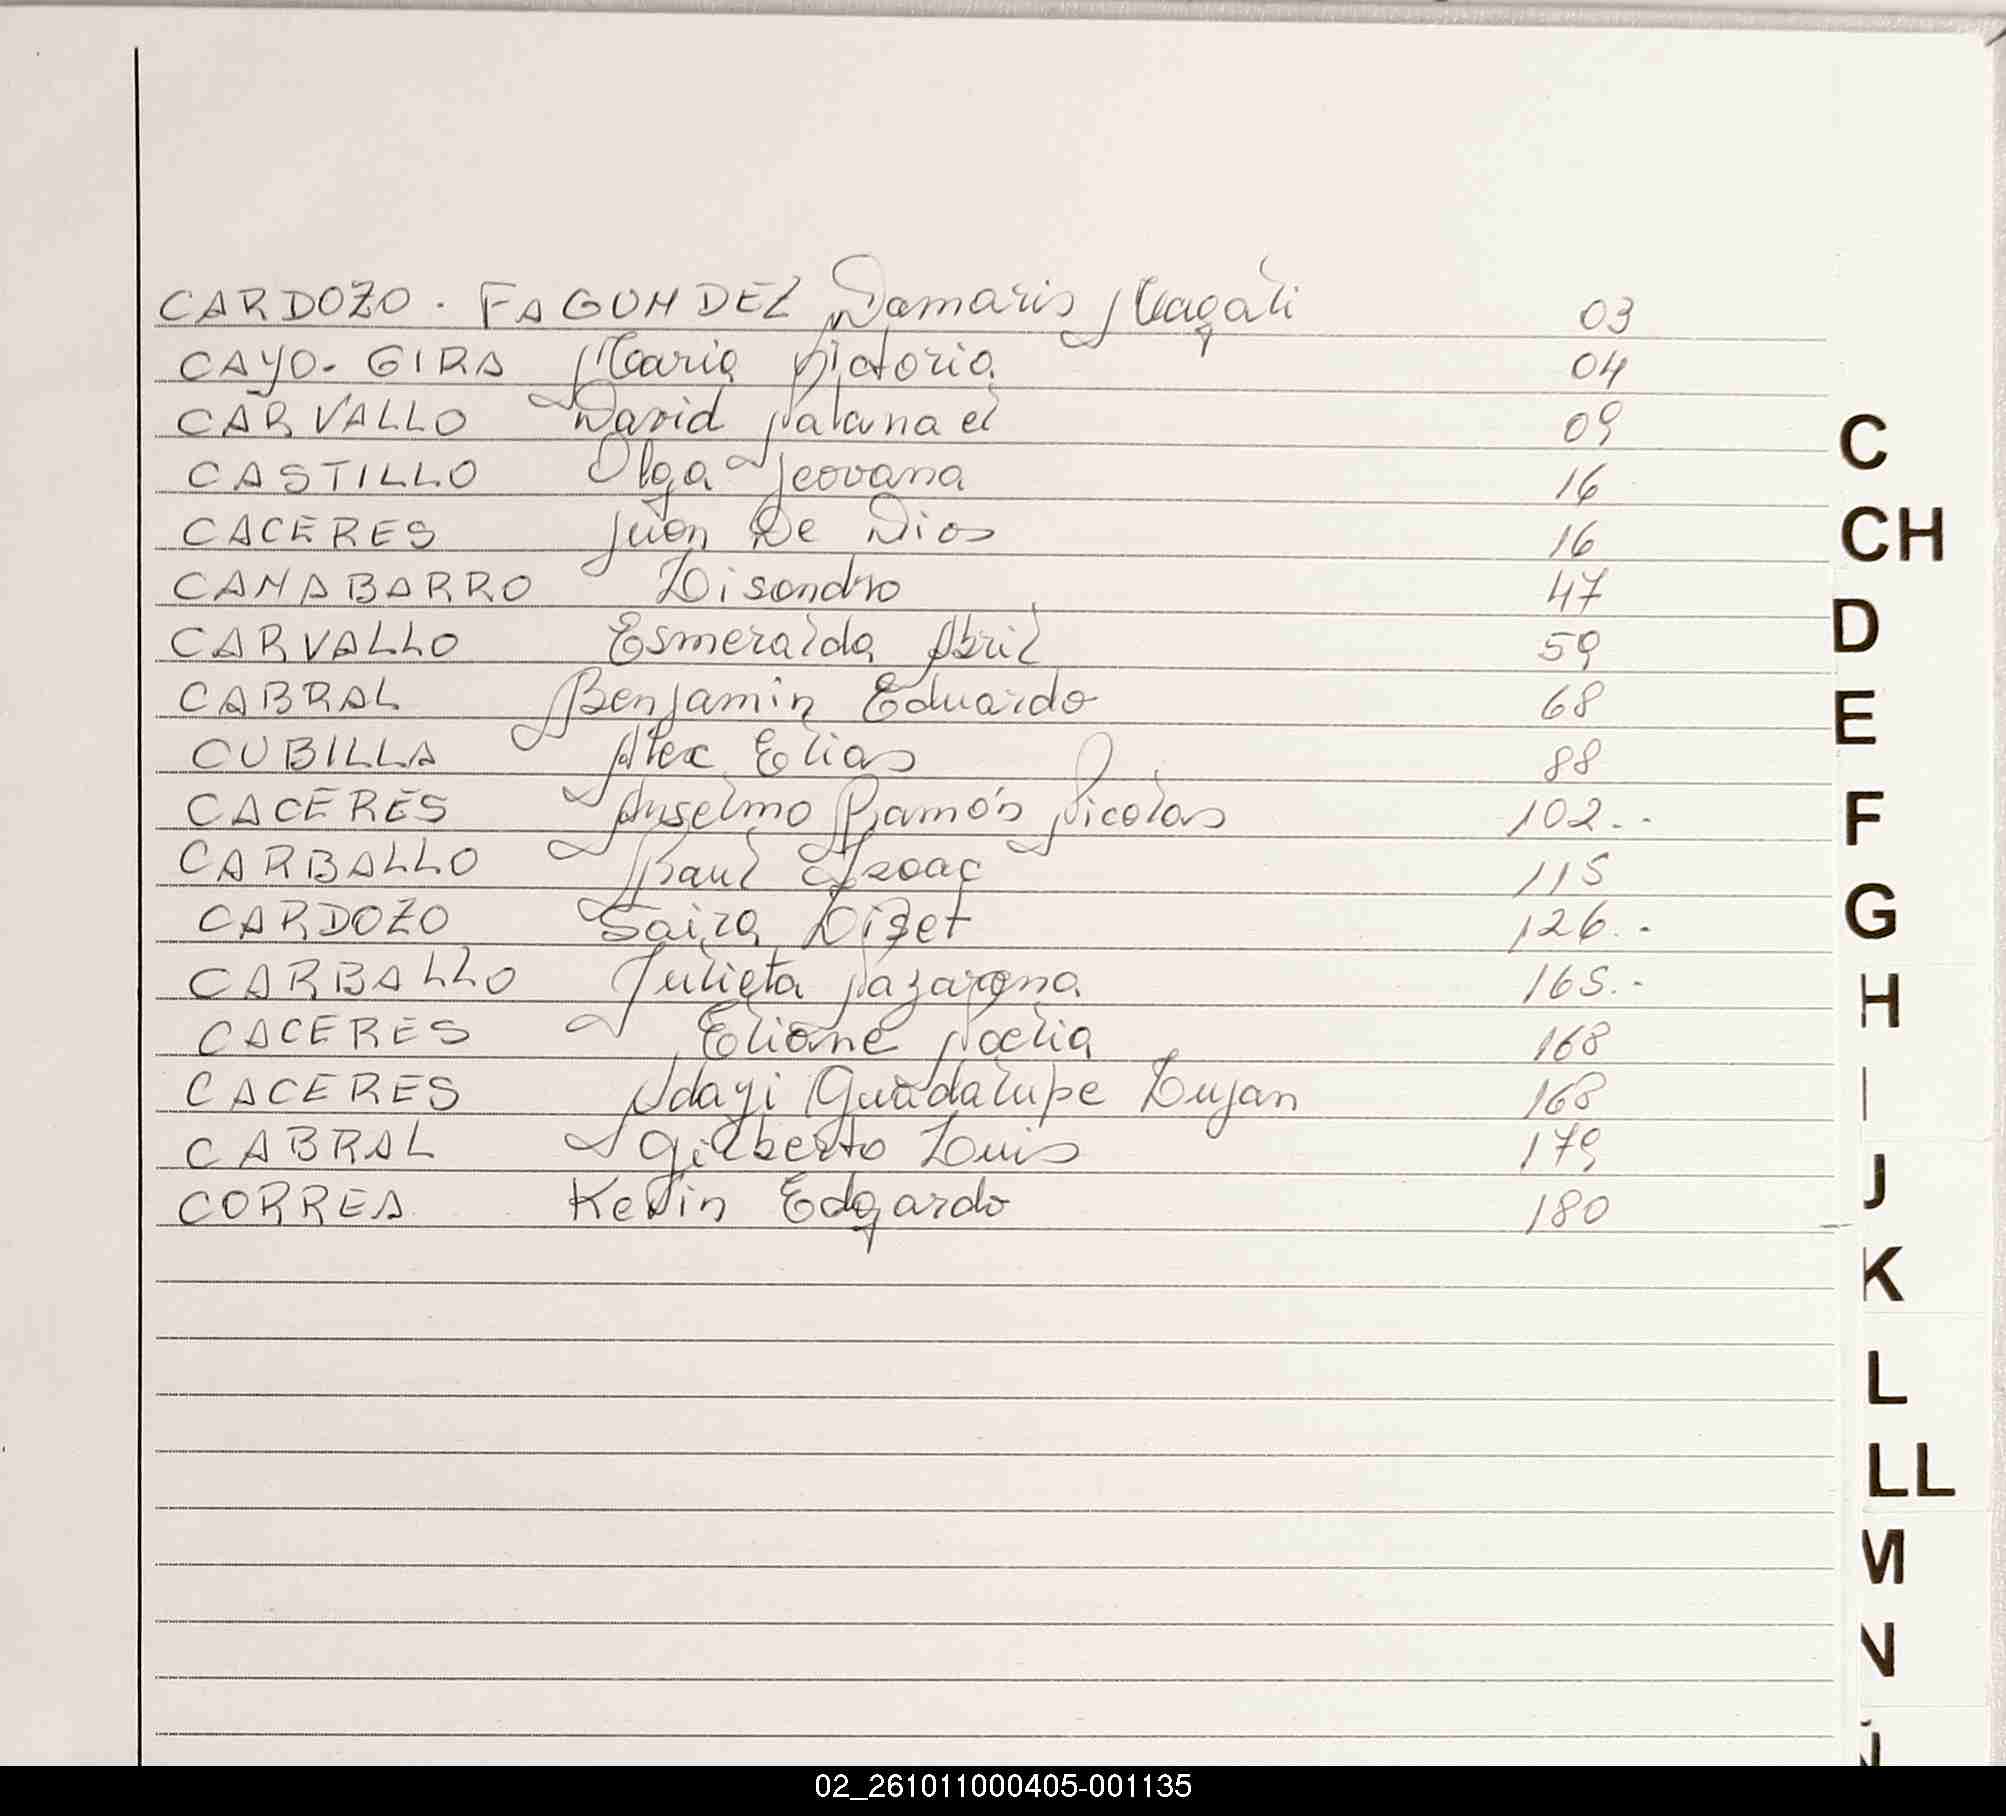 CARDOZO. FAGUNDEZ Damaris Magali 03
CAYO. GIRA Maria Victoria 04
CARVALLO David Natanael 09
CASTILLO Olga Jeovana 16
CACERES Juan De Dios 16
CANABARRO Lisandro 47
CARVALLO Esmeralda Abril 59
CABRAL Benjamin Eduardo 68
CUBILLA Alex Elias 88
CACERES Anselmo Ramón Nicolas 102..
CARBALLO Raul Isaac 115
CARDOZO Saira Lizet 126..
CARBALLO Julieta Nazarena 165..
CACERES Eliane Noelia 168
CACERES Guadalupe Lujan 168
CABRAL Gilberto Luis 179
CORREA Kevin Edgardo 180
C
CH
D
E
F
G
H
I
J
K
L
LL
M
N
02_261011000405-001135